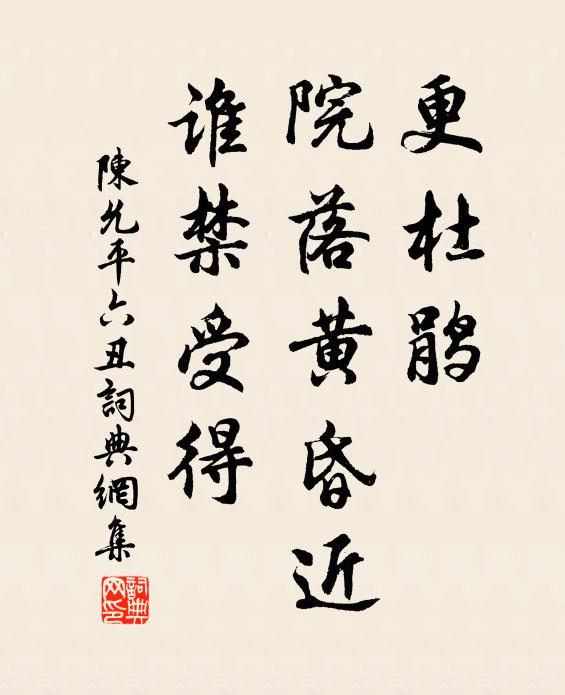 更杜鹃
院落黄昏近
谁禁受得
陳允平六丑詞典網集
詞典网印